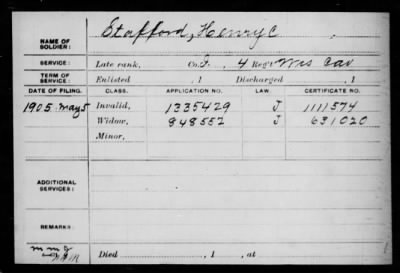 NAME OF SOLDIER: Stafford, Henry C
SERVICE: Late rank, Co. F, 4 Reg't Wis Cav
TERM OF SERVICE: Enlisted , 1 Discharged , 1
DATE OF FILING. CLASS. APPLICATION NO. LAW. CERTIFICATE NO.
1905 May 5 Invalid, 1335429 J 1111574
Widow, 848552 J 631020
Minor,
ADDITIONAL SERVICES:
REMARKS:
Died , 1 , at